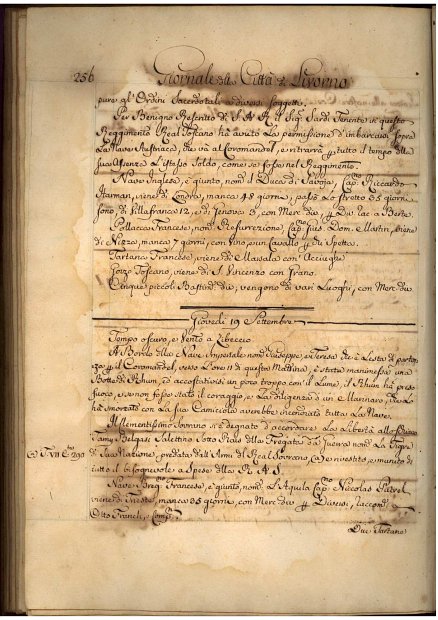 256 Giornale della Città di Livorno
pure gl'Ordini Sacerdotali a diversi soggetti.
Per Benigno Rescritto di S. A. R. il Sig. Sardi Tenente in questo
Reggimento Real Toscano ha avuto la permissione d'imbarcarsi sopra
la Nave Austriaca, che va al Coromandel, e entrarà tutto il tempo della
sua assenza l'istesso Soldo, come se fosse nel Reggimento.
Nave Inglese, è giunto, nom. il Duca di Savoja, Cap. Riccardo
Harman, viene di Londra, manca 48 giorni, passò lo stretto 35 giorni
sono, di Villafranca 12, e di Genova 3, con Merc.
Pollacca Francese, nom. Resurrezione, Cap. Dom. Martin, viene
di Nizza, manca 7 giorni, con vino, e un Cavallo
Tartana Francese, viene di Marsala con Acciughe
Gozzo Toscano, viene di S. Vincenzo con Grano.
Cinque piccoli Bastim. vengono di vari Luoghi, con Merc.
Giovedì 19 Settembre
Tempo oscuro, e Vento a Libeccio
A Bordo della Nave Imperiale nom. Giuseppe, e Teresa che è lesta di partenza
il Coromandel, sesso L'ore 11 di questa Mattina, è stata manimessa una
Botte di Rhum, ed accostatavisi un poco troppo con il Lume, il Rhum ha preso
fuoco, e se non fosse stato il coraggio, e la diligenza di un Marinaro, che lo
ha smorzato con la sua Camiciola avrebbe incendiata tutta la Nave.
Il Clementissimo Sovrano si è degnato d'accordare la Libertà allo
Belgasi Salettino Sotto Piloto della Fregata da Guerra nom. La Tigre
di sua Nazione, predata dall'Armi di Real Sovrano, (a) e rivestito, e munito di
tutto il bisognevole a Spese della R. A. S.
(a) T. VII C. 290
Nave Francese, è giunto, nom. L'Aquila Cap. Niccolas
viene di Trieste, manca 35 giorni, con Merc. Diversi, raccom.
Otto Franck, e Comp.
Due Tartane